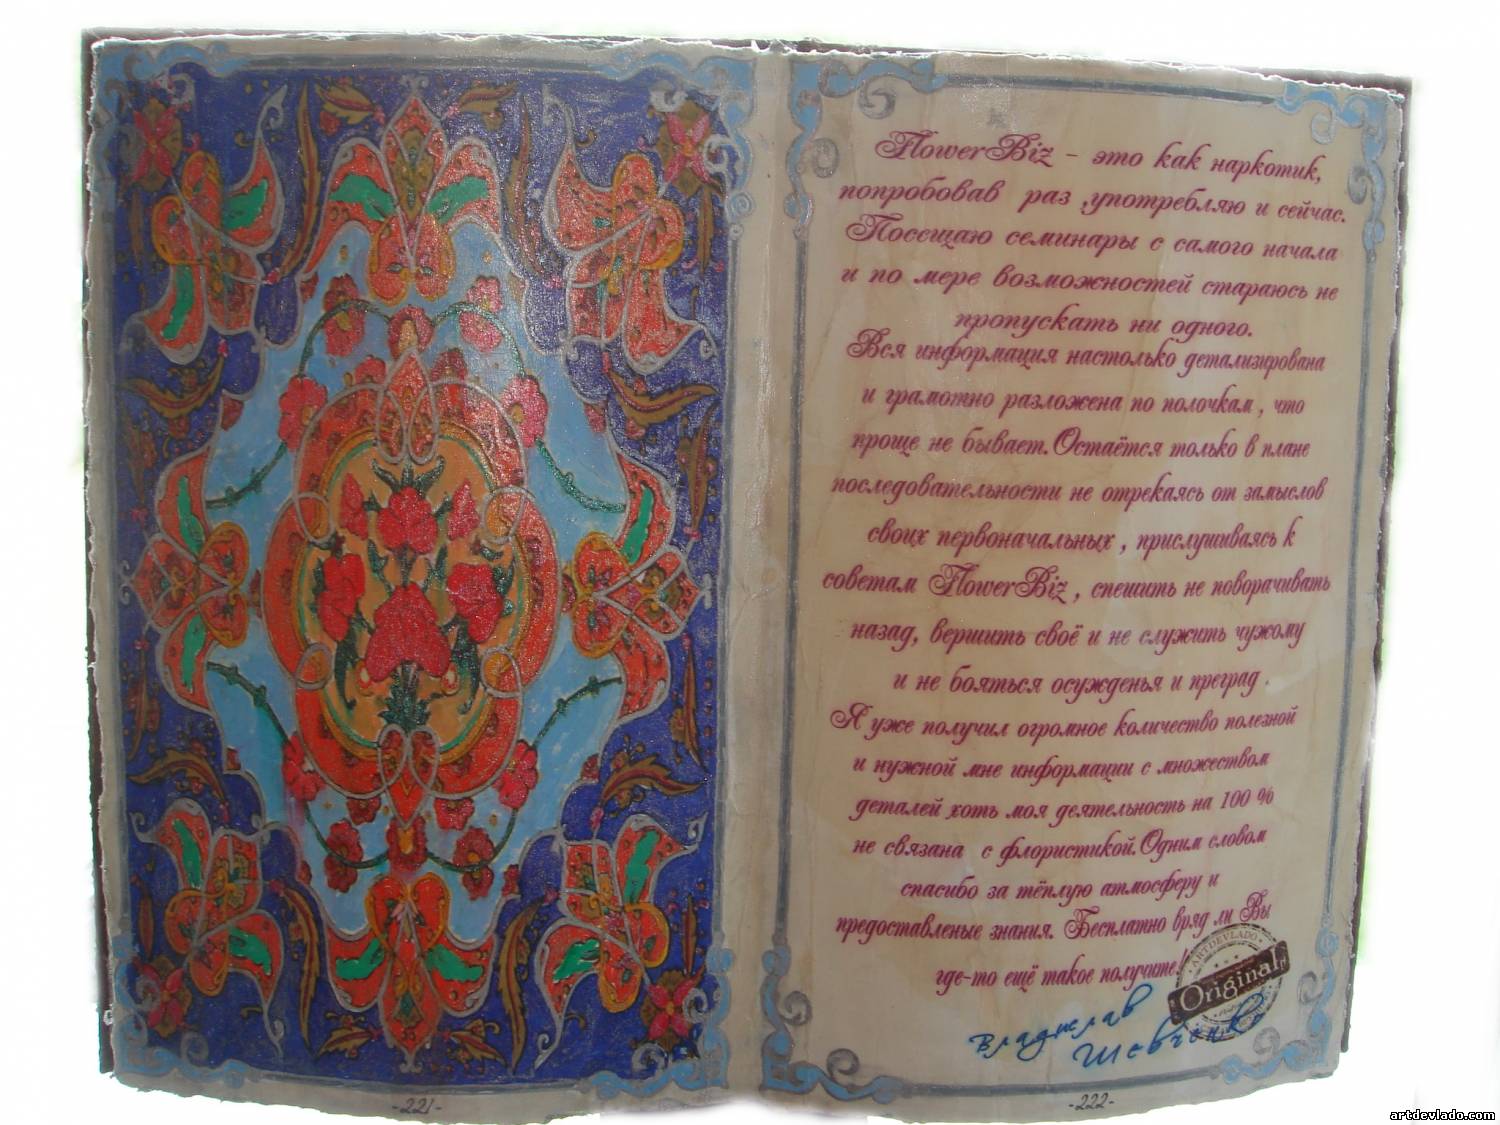 FlowerBiz – это как наркотик,
попробовав раз ,употребляю и сейчас.
Посещаю семинары с самого начала
и по мере возможностей стараюсь не
пропускать ни одного.
Вся информация настолько детализирована
и грамотно разложена по полочкам , что
проще не бывает.Остаётся только в плане
последовательности не отрекаясь от замыслов
своих первоначальных , прислушиваясь к
советам FlowerBiz , спешить не поворачивать
назад, вершить своё и не служить чужому
и не бояться осужденья и преград .
Я уже получил огромное количество полезной
и нужной мне информации с множеством
деталей хоть моя деятельность на 100 %
не связана с флористикой.Одним словом
спасибо за тёплую атмосферу и
предоставленые знания. Бесплатно вряд ли Вы
где-то ещё такое получите!
ARTDEVLADO
Original
Владислав
Шевченко
-221-
-222-
artdevlado.com